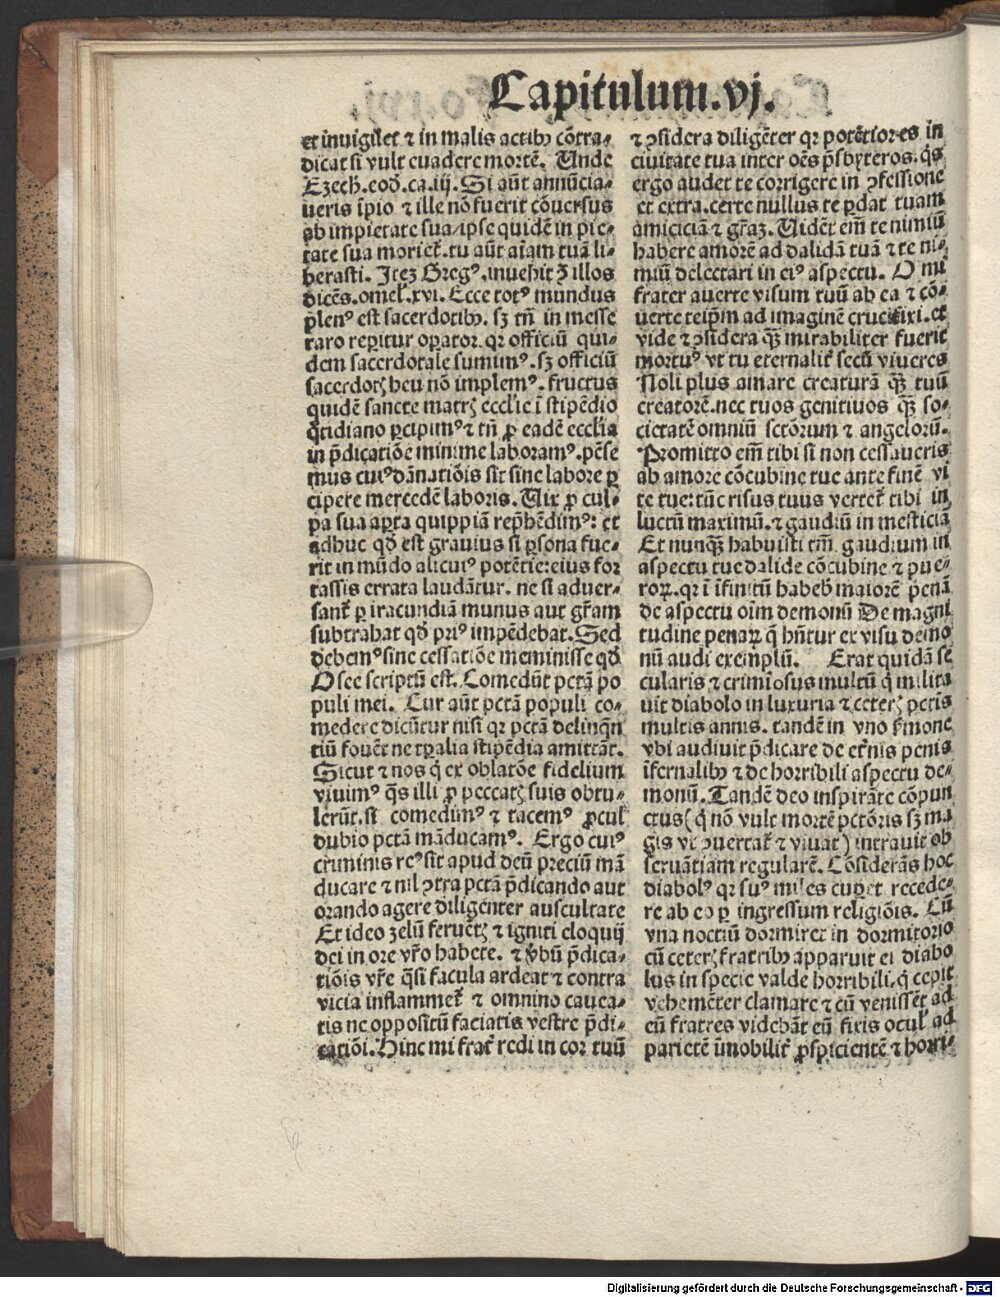 Capitulum.vj.
et inuigilet ⁊ in malis actibꝫ cōtra⸗
dicat si vult euadere mortē. Unde
Ezech. eod̄. ca. iij. Si aūt annūcia⸗
ueris īpio ⁊ ille nō fuerit cōuersus
ab impietate sua/ipse quidē in pie⸗
tate sua moriet̄. tu aūt aīam tuā li⸗
berasti. Itē Greg⁹. inuehit ↄ̄ illos
dicēs. omel̄. xvi. Ecce tot⁹ mundus
plen⁹ est sacerdotibꝫ. sꝫ tn̄ in messe
raro reꝑitur oꝑator. qꝛ officiū qui⸗
dem sacerdotale sumim⁹. sꝫ officiū
sacerdotꝭ heu nō implem⁹. fructus
quidē sancte matrꝭ eccl̄ie ī stipēdio
q̄tidiano ꝑcipim⁹ ⁊ tn̄ ꝓ eadē eccl̄ia
in p̄dicatiōe minime laboram⁹. pēse
mus cui⁹ dānatiōis sit sine labore ꝑ
cipere mercedē laboris. Uix ꝓ cul⸗
pa sua aꝑta quippiā rep̄hēdim⁹: et
adhuc qd̄ est grauius si ꝑsona fue⸗
rit in mūdo alicui⁹ potētie: eius for
tassis errata laudātur. ne si aduer⸗
sant̄ ꝑ iracundiā munus aut gr̄am
subtrahat qd̄ pri⁹ impēdebat. Sed
debem⁹ sine cessatiōe meminisse qd̄
Osee scriptū est. Comedūt pctā po
puli mei. Cur aūt pctā populi co⸗
medere dicūtur nisi qꝛ pctā delinqn̄
tiū fouēt ne tꝑalia stipēdia amittāt.
Sicut ⁊ nos q̄ ex oblatōe fidelium
viuim⁹ q̄s illi ꝓ peccatꝭ suis obtu⸗
lerūt. si comedim⁹ ⁊ tacem⁹ ꝓcul
dubio pctā māducam⁹. Ergo cui⁹
criminis re⁹ sit apud deū preciū mā
ducare ⁊ nil ↄtra pctā p̄dicando aut
orando agere diligenter auscultate
Et ideo zelū feruētꝭ ⁊ igniti eloquij
dei in ore vr̄o habete. ⁊ v̄bū p̄dica⸗
tiōis vr̄e q̄si facula ardeat ⁊ contra
vicia inflammet̄ ⁊ omnino cauea⸗
tis ne oppositū faciatis vestre p̄di⸗
catiōi. Hinc mi frat̄ redi in cor tuū
⁊ ↄsidera diligēter qꝛ potētiores in
ciuitate tua inter oēs p̄sbyteros. q̄s
ergo audet te corrigere in ↄfessione
et extra. certe nullus te ꝑdat tuam
amiciciā ⁊ gr̄aꝫ. Uidēt em̄ te nimiū
habere amorē ad dalidā tuā ⁊ te ni⸗
miū delectari in ei⁹ aspectu. O mi
frater auerte visum tuū ab ea ⁊ cō⸗
uerte teip̄m ad imaginē crucifixi. et
vide ⁊ ↄsidera qꝫ̄ mirabiliter fuerit
mortu⁹ vt tu eternalit̄ secū viueres
Noli plus amare creaturā qꝫ̄ tuū
creatorē. nec tuos genitiuos qꝫ̄ so⸗
cietatē omniū sctōrum ⁊ angelorū.
Promitto em̄ tibi si non cessaueris
ab amore cōcubine tue ante finē vi
te tue: tūc risus tuus vertet̄ tibi in
luctū maximū. ⁊ gaudiū in mesticiā
Et nunqꝫ̄ habuisti tm̄ gaudium in
aspectu tue dalide cōcubine ⁊ pue⸗
roꝝ. qꝛ ī īfinitū habeb̄ maiorē penā
de aspectu oīm demonū De magni
tudine penaꝝ q̄ hn̄tur ex visu demo
nū audi exemplū. Erat quidā se
cularis ⁊ crimiosus multū q̄ milita
uit diabolo in luxuria ⁊ ceterꝭ pctis
multis annis. tandē in vno ẜmone
vbi audiuit p̄dicare de et̄nis penis
īfernalibꝫ ⁊ de horribili aspectu de⸗
monū. Tandē deo inspirāte cōpun
ctus (q̄ nō vult mortē pctōris sꝫ ma
gis vt ↄuertat̄ ⁊ viuat) intrauit ob
seruātiam regularē. Cōsiderās hoc
diabol⁹ qꝛ su⁹ miles cuꝑet recede⸗
re ab eo ꝑ ingressum religiōis. Cū
vna noctiū dormiret in dormitorio
cū ceterꝭ fratribꝫ apparuit ei diabo
lus in specie valde horribili. q̄ cepit
vehemēter clamare ⁊ cū venissēt ad
eū fratres videbāt eū fixis ocul̄ ad
parietē īmobilit̄ ꝓspicientē ⁊ horri⸗
Digitalisierung gefördert durch die Deutsche Forschungsgemeinschaft - DFG